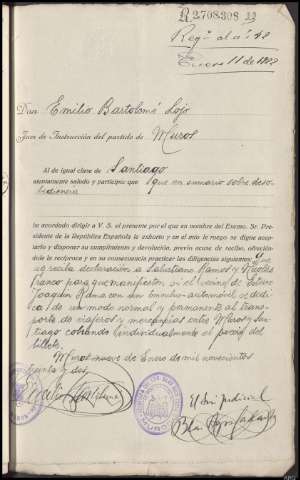 R 2708308
Regº al nº 48
Enero 11 de 1932
Don Emilio Bartolomé Lojo
Juez de Instrucción del partido de Muros
Al de igual clase de Santiago
atentamente saludo y participo que que en sumario sobre deso-
bediencia
he acordado dirigir a V. S. el presente por el que en nombre del Excmo. Sr. Pre-
sidente de la República Española le exhorto y en el mío le ruego se digne acep-
tarlo y disponer su cumplimiento y devolución, previo acuse de recibo, ofrecién-
dole la recíproca y en su consecuencia practicar las diligencias siguientes: Que
se reciba declaración a Salustiano Ramos y Nicolás
Franco para que manifiesten si el vecino de Esteiro
Joaquín Rama con su ómnibus-automóvil se dedi-
ca de un modo normal y permanente al trans-
porte de viajeros y mercancías entre Muros y San-
tiago cobrando individualmente el precio del
billete.
Muros nueve de Enero de mil novecientos
treinta y dos
El Srio judicial